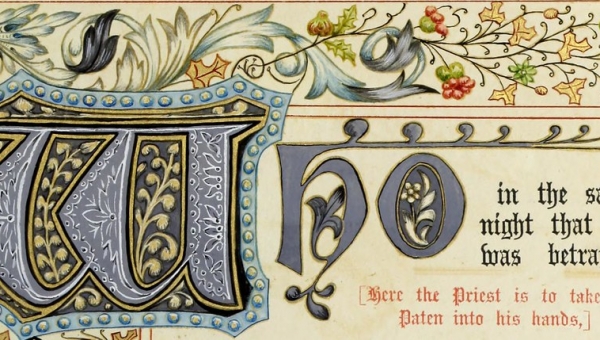 WHO in the sa
night that
was betra
[Here the Priest is to take
Paten into his hands,]